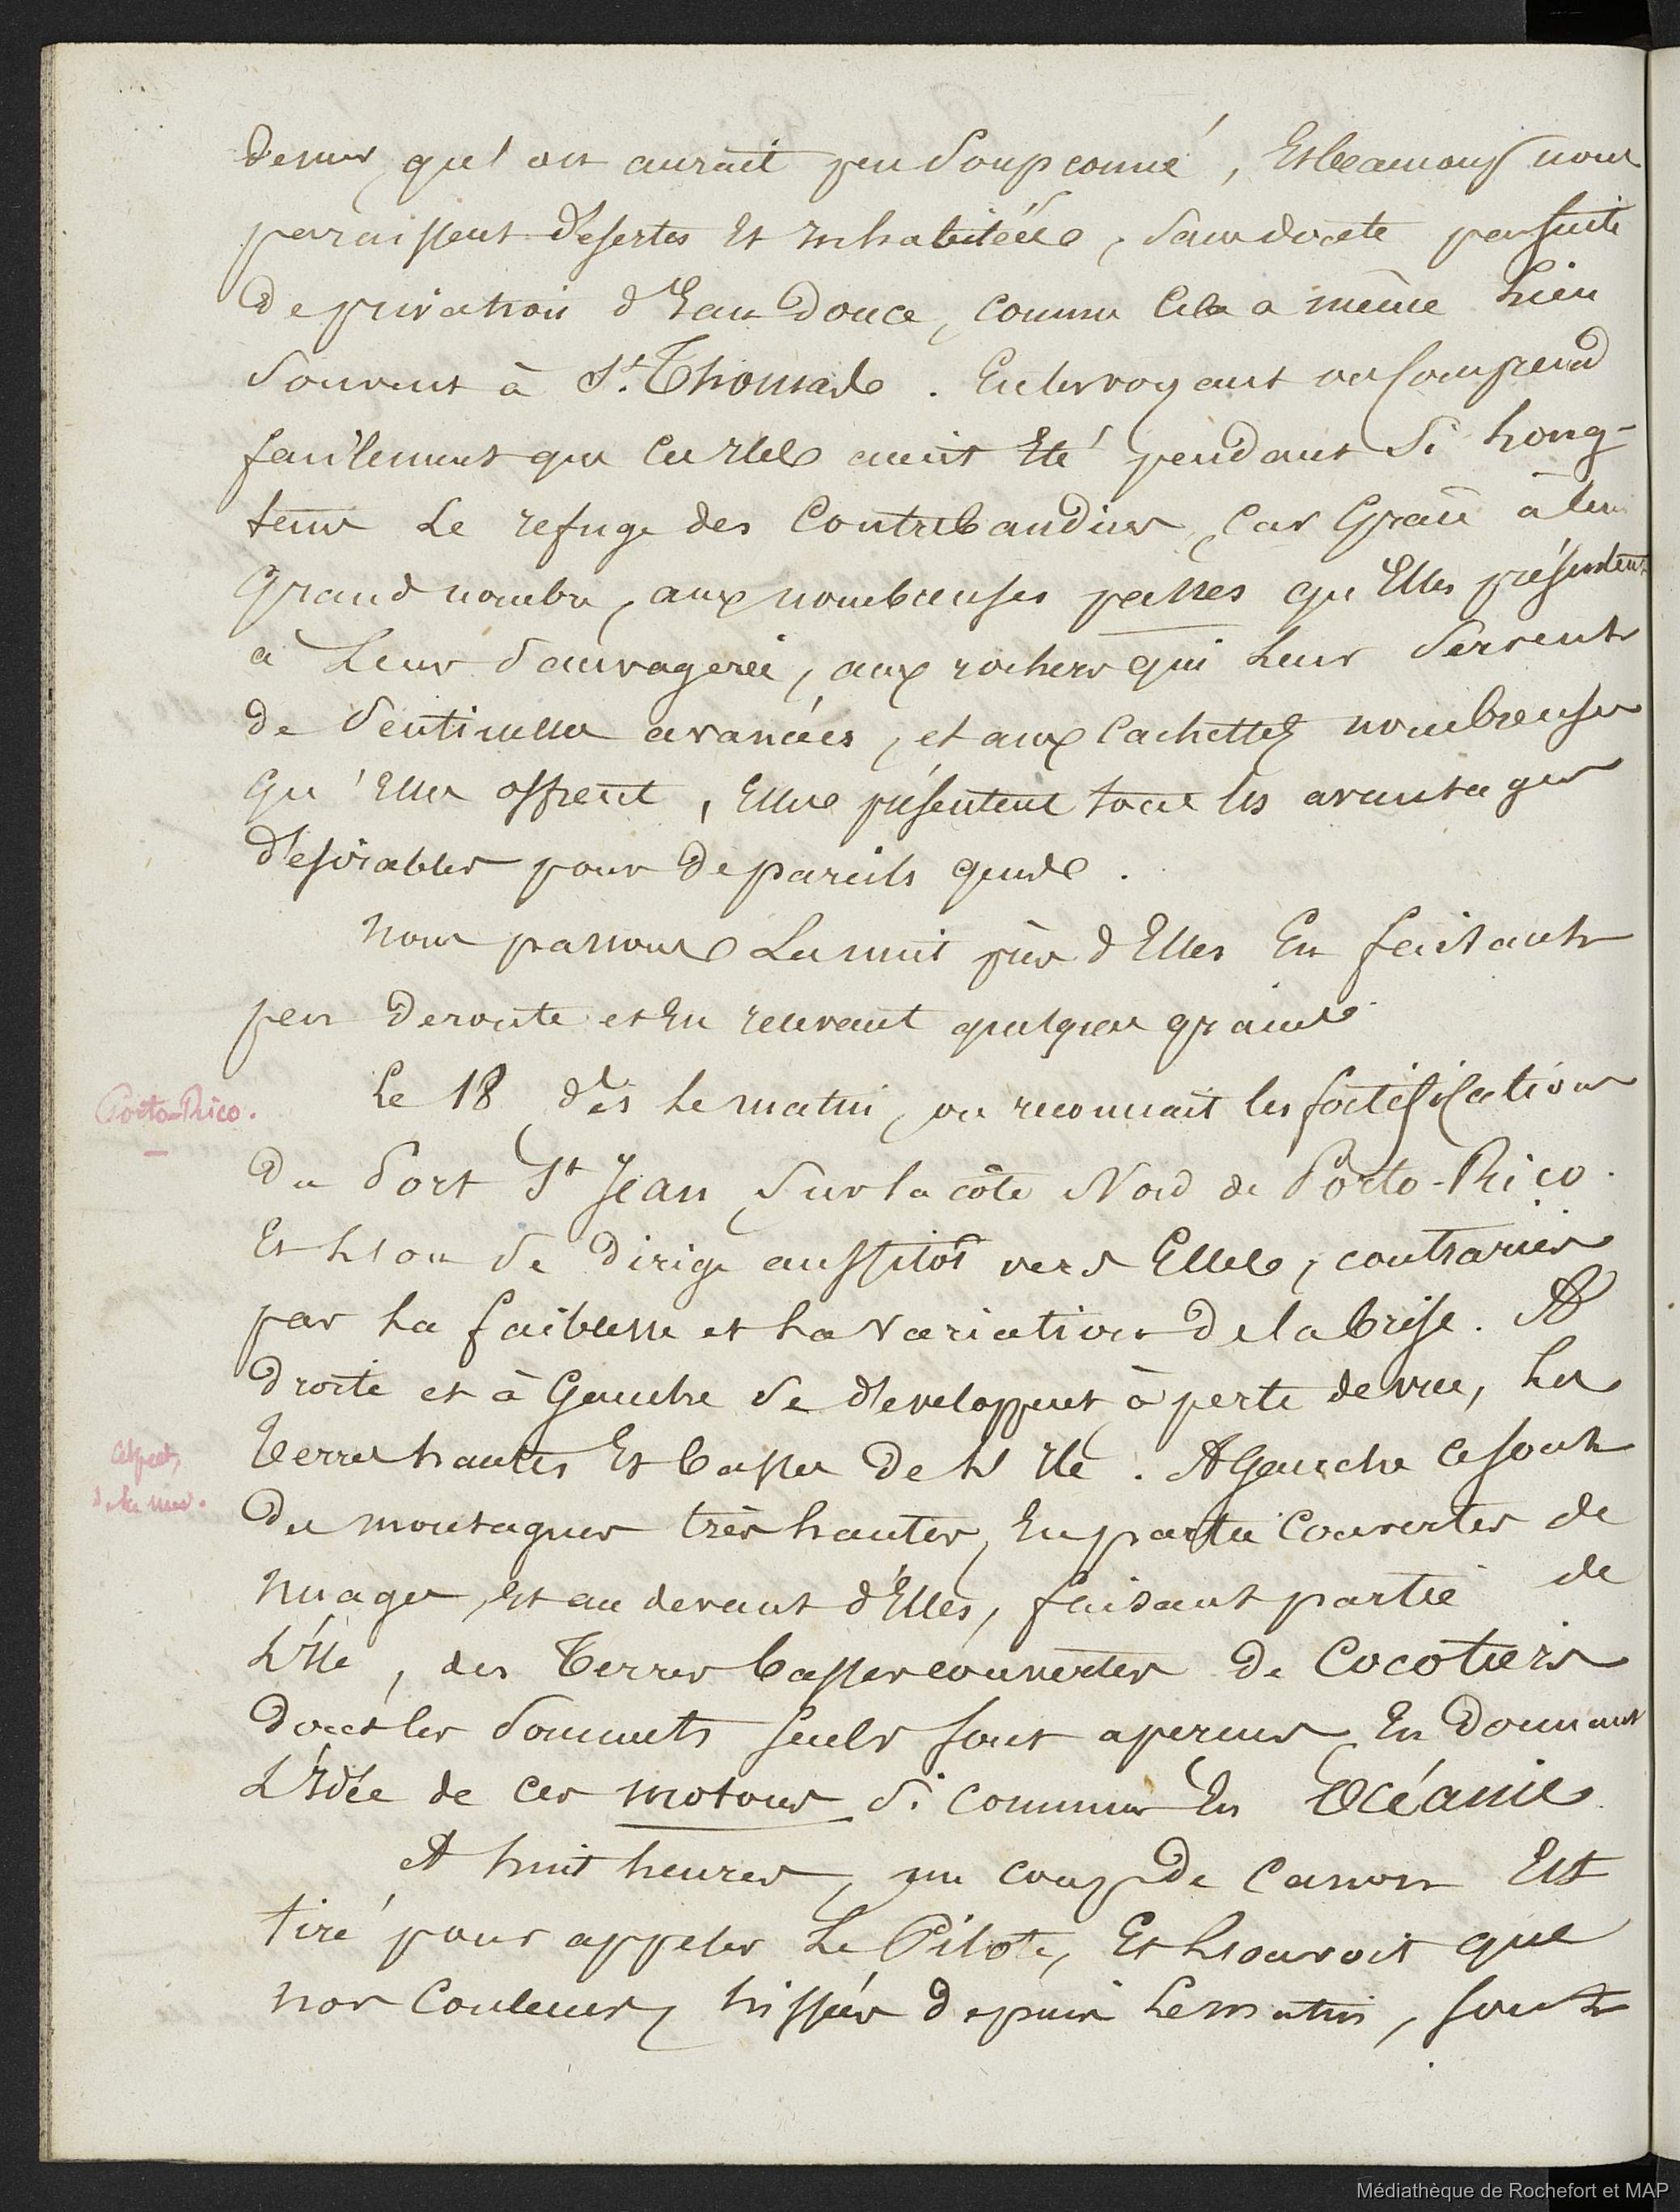 qu'on aurait peu soupçonné, Et beaucoup nous
paraissent désertes Et Inhabitées, sans doute par suite
de privation d'Eau douce, comme cela a même lieu
souvent à St. Thomas. En les voyant on comprend
facilement que ces Iles aient Eté pendant si long-
tems le refuge des Contrebandiers, car Grâce à leur
Grand nombre, aux nombreuses passes qu'Elles présentent
à leur sauvagerie, aux rochers qui leur servent
de sentinelles avancées, et aux cachettes nombreuses
qu'Elles offrent, Elles présentent tous les avantages
désirables pour de pareils gens.
Nous passons La nuit près d'Elles En faisant
peu de route et En recevant quelques grains
Porto-Rico.
Le 18 dès le matin, on reconnait les fortifications
du Port St Jean, sur la côte Nord de Porto-Rico.
Et l'on se dirige aussitôt vers Elles, contrariés
par la faiblesse et la variation de la brise. A
droite et à Gauche se développent à perte de vue, les
Aspect,
de la mer.
Terres hautes Et basses de l'Ile. A Gauche ce sont
des montagnes très hautes, En partie couvertes de
nuages, Et au devant d'Elles, faisant partie de
l'Ile, des Terres basses couvertes de Cocotiers
dont les sommets seuls sont aperçus En donnant
L'Idée de ces motous si communs En Océanie
A huit heures, un coup de canon Est
tiré pour appeler Le Pilote, Et l'on voit que
nos couleurs, hissées depuis le matin, sont
Médiathèque de Rochefort et MAP